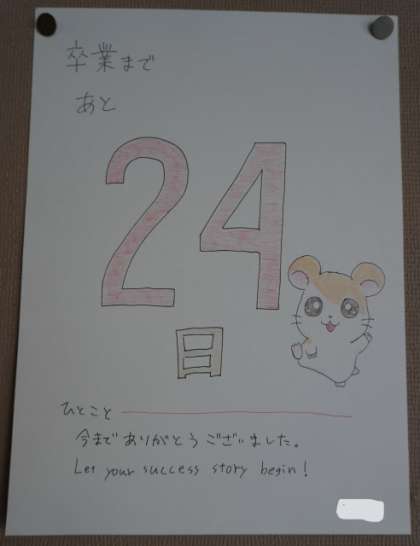 卒業まで
あと
24
日
ひとこと
今までありがとうございました。
Let your success story begin!